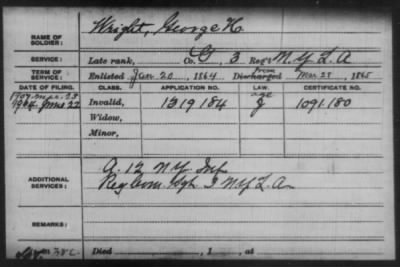 NAME OF SOLDIER: Wright, George H.
SERVICE: Late rank, Co. G, 3 Reg't N.Y. L. A
TERM OF SERVICE: Enlisted Jan 20, 1864 Discharged Mar. 28, 1865
DATE OF FILING. CLASS. APPLICATION NO. LAW. CERTIFICATE NO.
1904 June 22 Invalid, 1319184 J 1091.180
Widow,
Minor,
ADDITIONAL SERVICES: A. 12 N.Y. Inf
N.Y. L. A
REMARKS:
Died , 1 , at